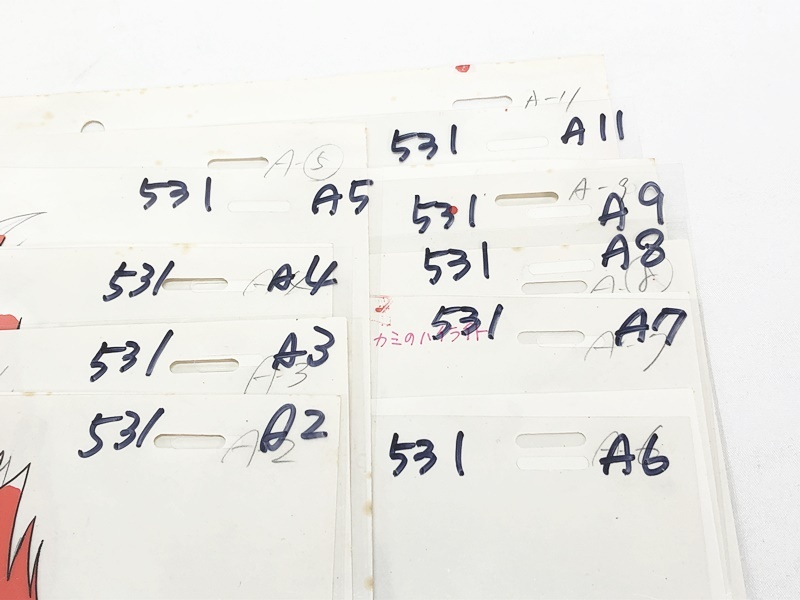 A-11
531 A11
A-⑤
531 A5
A-9
531 A9
531 A8
A-⑧
531 A4
カミのハイライト
531 A7
A-7
531 A3
A-3
531 A2
A2
531 A6